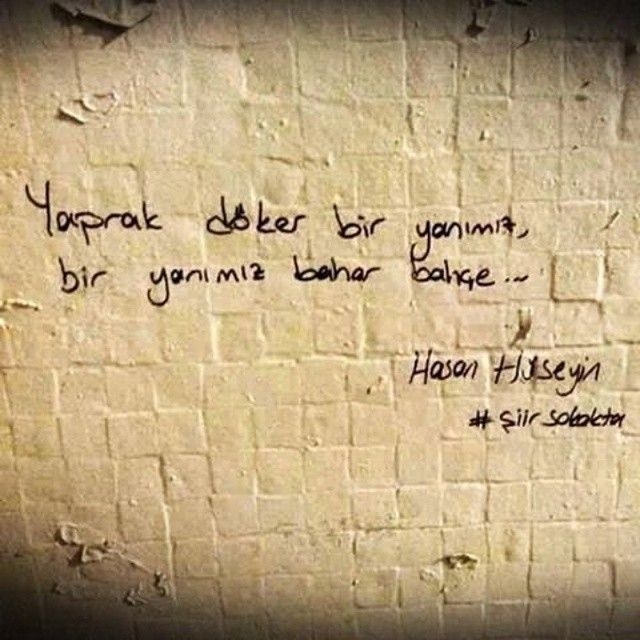 Yaprak döker bir yanımız,
bir yanımız bahar bahçe...
Hasan Hüseyin
# şiir sokakta